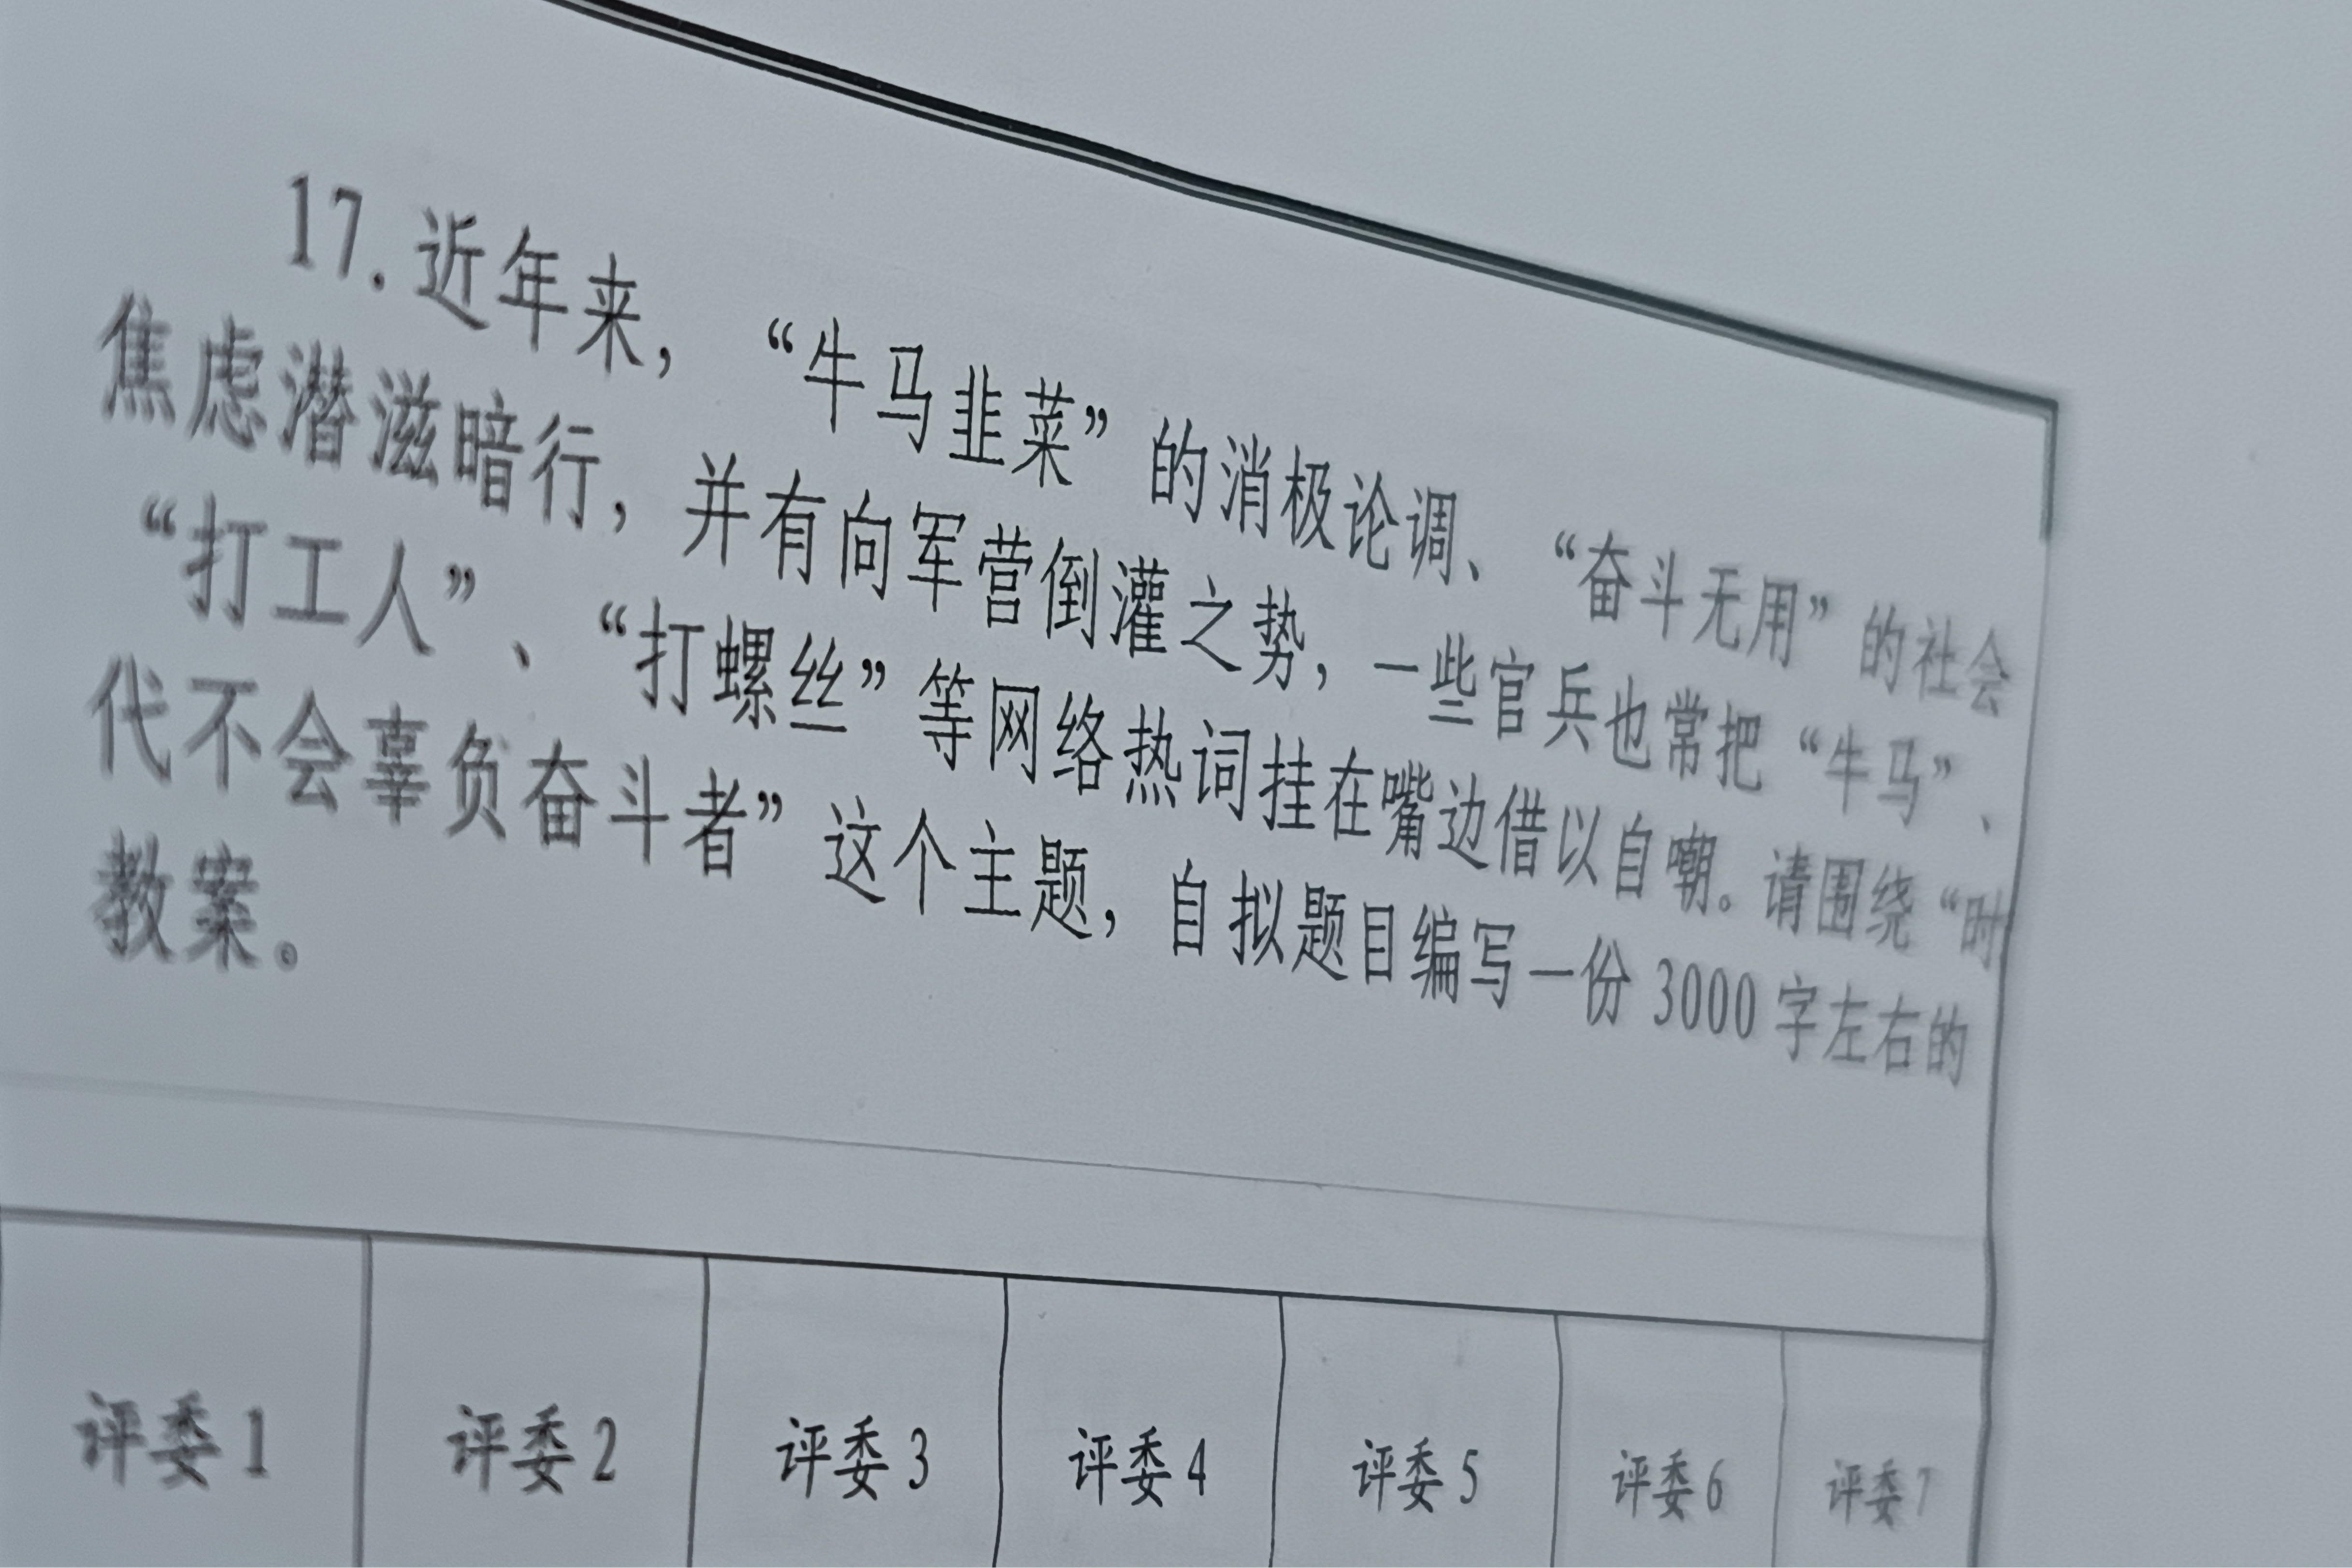 17.近年来，“牛马韭菜”的消极论调、“奋斗无用”的社会
焦虑潜滋暗行，并有向军营倒灌之势，一些官兵也常把“牛马”、
“打工人”、“打螺丝”等网络热词挂在嘴边借以自嘲。请围绕“时
代不会辜负奋斗者”这个主题，自拟题目编写一份 3000 字左右的
教案。
评委 1 评委 2 评委 3 评委 4 评委 5 评委 6 评委 7